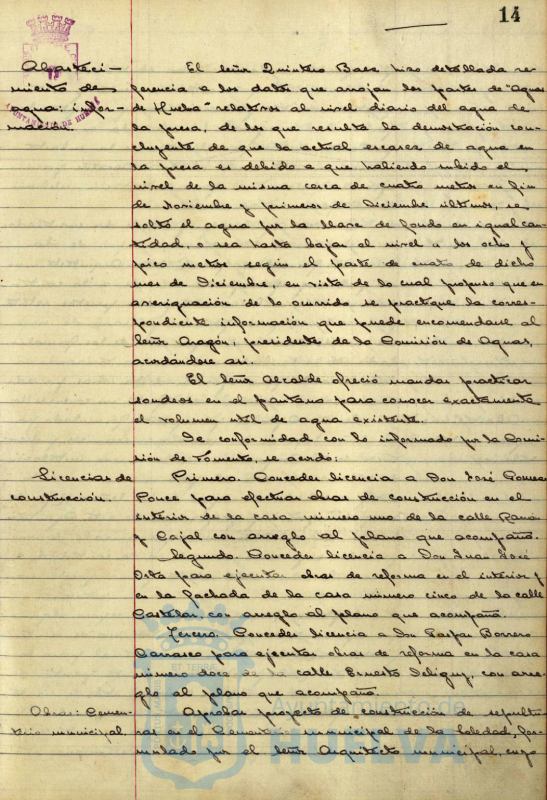 14
Abasteci-
miento de
agua: infor-
mación.
AYUNTAMIENTO DE HUELVA
El señor Quintero Baez hizo detallada re-
ferencia a los datos que arrojan los partes de "Aguas
de Huelva" relativos al nivel diario del agua de
la presa, de los que resulta la demostración con-
cluyente de que la actual escasez de agua en
la presa es debido a que habiendo subido el
nivel de la misma cerca de cuatro metros en fin
de Noviembre y primeros de Diciembre últimos, se
soltó el agua por la llave de fondo en igual can-
tidad, o sea hasta bajar el nivel a los ocho y
pico metros según el parte de cuatro de dicho
mes de Diciembre, en vista de lo cual propuso que en
averiguación de lo ocurrido se practique la corres-
pondiente información que puede encomendarse al
señor Aragón, presidente de la Comisión de Aguas,
acordándose así.
El señor Alcalde ofreció mandar practicar
sondeos en el pantano para conocer exactamente
el volumen útil de agua existente.
De conformidad con lo informado por la Comi-
sión de Fomento, se acordó:
Licencias de
construcción.
Primero. Conceder licencia a Don José Gomez
Ponce para efectuar obras de construcción en el
interior de la casa número uno de la calle Ramón
y Cajal con arreglo al plano que acompaña.
Segundo. Conceder licencia a Don Juan José
Osta para ejecutar obras de reforma en el interior y
en la fachada de la casa número cinco de la calle
Castelar, con arreglo al plano que acompaña.
Tercero. Conceder licencia a Don Gaspar Borrero
Carrasco para ejecutar obras de reforma en la casa
número doce de la calle Ernesto Deligny, con arre-
glo al plano que acompaña.
Obras: Cemen-
terio municipal.
Aprobar proyecto de construcción de sepultu-
ras en el Cementerio municipal de la Soledad, for-
mulado por el señor Arquitecto municipal, cuyo
Ayuntamiento de
HUELVA